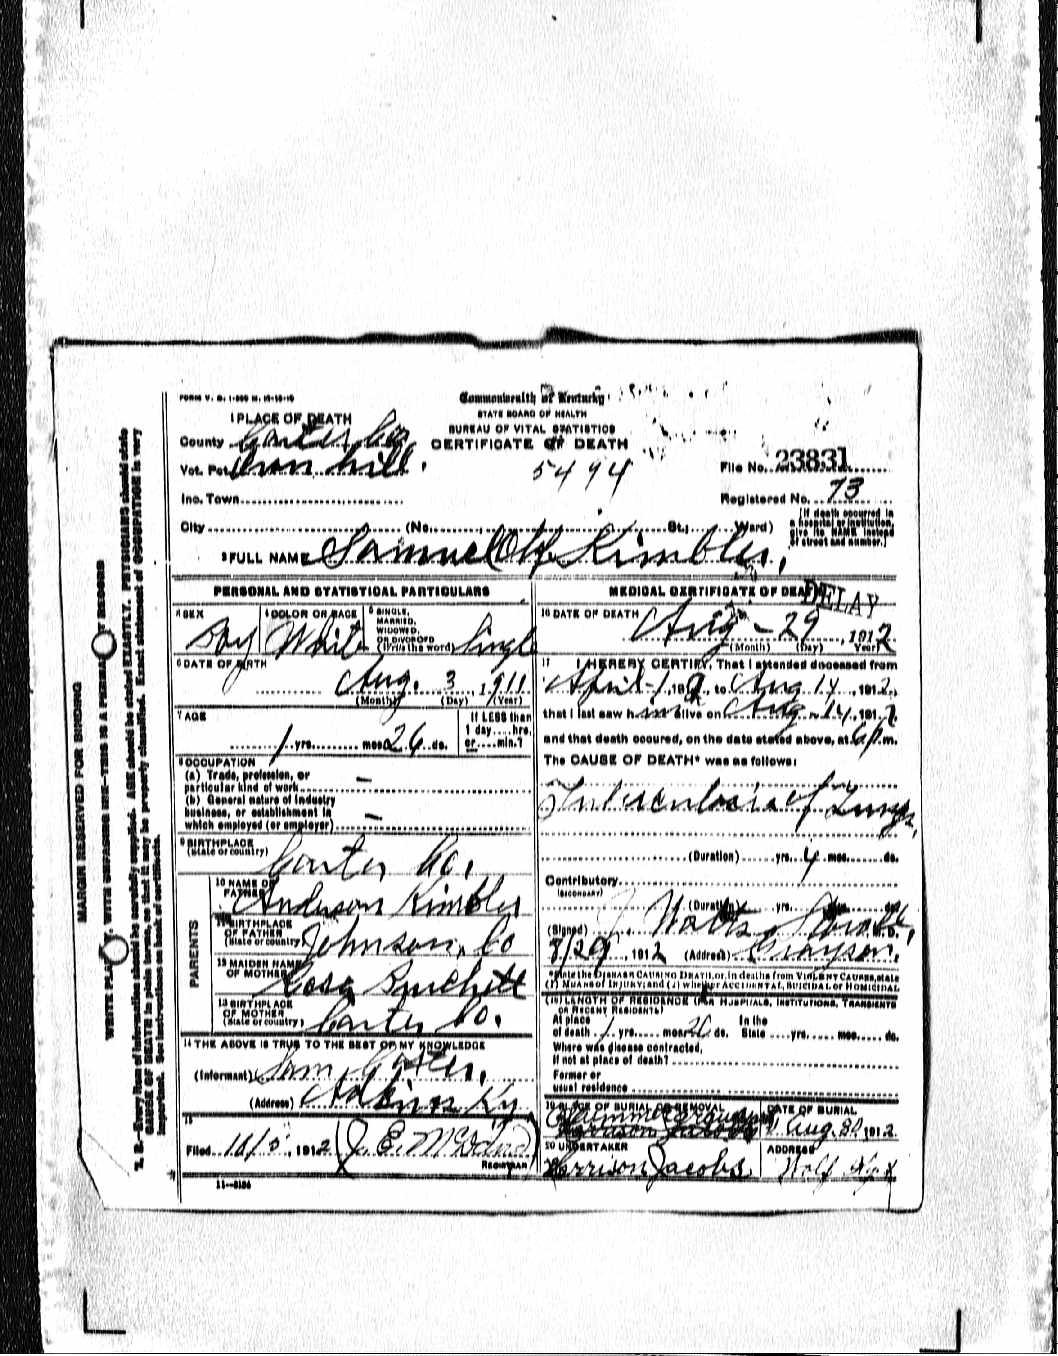 FORM V. S. 1-
Commonwealth of Kentucky
STATE BOARD OF HEALTH
BUREAU OF VITAL STATISTICS
CERTIFICATE OF DEATH
1 PLACE OF DEATH
County Carter Co
Vot. Pct. Iron hill.
5494
File No. 23831
Inc. Town
Registered No. 73
City (No. St.; Ward)
[If death occurred in a hospital or institution, give its NAME instead of street and number.]
2 FULL NAME Samuel Kimbler,
PERSONAL AND STATISTICAL PARTICULARS
3 SEX Boy
4 COLOR OR RACE White
5 SINGLE, MARRIED, WIDOWED, OR DIVORCED (Write the word) Single
6 DATE OF BIRTH
Aug. 3, 1911
(Month) (Day) (Year)
7 AGE
1 yrs. mos. 26 ds.
If LESS than 1 day....hrs. or....min.?
8 OCCUPATION
(a) Trade, profession, or particular kind of work —
(b) General nature of industry business, or establishment in which employed (or employer) —
9 BIRTHPLACE
(State or country) Carter Co.
PARENTS
10 NAME OF FATHER Anderson Kimbler
11 BIRTHPLACE OF FATHER (State or country) Johnson, Co
12 MAIDEN NAME OF MOTHER Rosa Burchett
13 BIRTHPLACE OF MOTHER (State or country) Carter Co.
14 THE ABOVE IS TRUE TO THE BEST OF MY KNOWLEDGE
(Informant) Sam
(Address) Adkins Ky
15
Filed 1912 J. E.
REGISTRAR
11—3184
MEDICAL CERTIFICATE OF DEATH
DELAY
16 DATE OF DEATH
Aug - 29, 1912
(Month) (Day) (Year)
17 I HEREBY CERTIFY, That I attended deceased from
April - 1, 191 , to Aug 14, 1912,
that I last saw him alive on Aug 14, 1912,
and that death occured, on the date stated above, at 6 p.m.
The CAUSE OF DEATH* was as follows:
Tuberculosis of Lungs,
(Duration) yrs. 4 mos. ds.
Contributory
(SECONDARY)
(Duration) yrs. mos. ds.
(Signed) J. Watts M.D.
8/29, 1912 (Address) Grayson.
*State the DISEASE CAUSING DEATH, or, in deaths from VIOLENT CAUSES, state (1) MEANS OF INJURY; and (2) whether ACCIDENTAL, SUICIDAL or HOMICIDAL.
18 LENGTH OF RESIDENCE (FOR HOSPITALS, INSTITUTIONS, TRANSIENTS OR RECENT RESIDENTS)
At place of death 1 yrs. mos. 26 ds. In the State yrs. mos. ds.
Where was disease contracted, if not at place of death?
Former or usual residence
19 PLACE OF BURIAL OR REMOVAL
DATE OF BURIAL
Aug. 30, 1912
20 UNDERTAKER
Harrison Jacobs
ADDRESS
Wolf
MARGIN RESERVED FOR BINDING
WRITE PLAINLY, WITH UNFADING INK—THIS IS A PERMANENT RECORD
N. B.—Every item of information should be carefully supplied. AGE should be stated EXACTLY. PHYSICIANS should state
CAUSE OF DEATH in plain terms, so that it may be properly classified. Exact statement of OCCUPATION is very
important. See instructions on back of certificate.